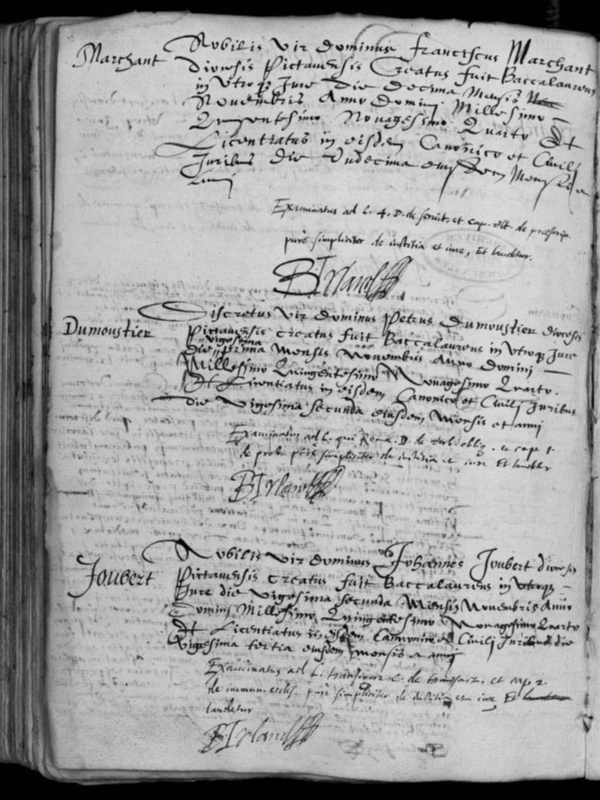 Marchant
Nobilis vir dominus Franciscus Marchant
diocesis Pictavensis Creatus fuit Baccalaureus
in utroq Jure die decima mensis
Novembris Anno Domini Millesimo
Quingentesimo Nonagesimo Quarto Et
Licentiatus in eisdem Canonico et Civili
Juribus die Undecima eiusdem Mensis et
Anni
Examinatus ad L. 4. D. de servit. et cap.
pure simpliciter de justitia et jure, Et laudetur.
BIrland
Dumoustier
Discretus vir dominus Petrus Dumoustier diocesis
Pictavensis creatus fuit Baccalaureus in utroq Jure
vigesima
die prima Mensis Novembris Anno domini
Millesimo Quingentesimo Nonagesimo Quarto.
Et Licentiatus in eisdem Canonico et Civili Juribus
die vigesima secunda eiusdem Mensis et anni
Examinatus ad L. qui Roma. D. de verb. obli. et cap 1.
de prob. pure simpliciter de justitia et jure Et laudetur
BIrland
Joubert
Nobilis vir dominus Johannes Joubert diocesis
Pictavensis Creatus fuit Baccalaureus in utroque
Jure die vigesima secunda Mensis Novembris Anno
Domini Millesimo Quingentesimo Nonagesimo Quarto
Et Licentiatus in eisdem Canonico et Civili Juribus die
vigesima tertia eiusdem mensis et anni
Examinatus ad L. C. de et cap 2.
de pure simpliciter de justitia et jure Et
laudetur
BIrland